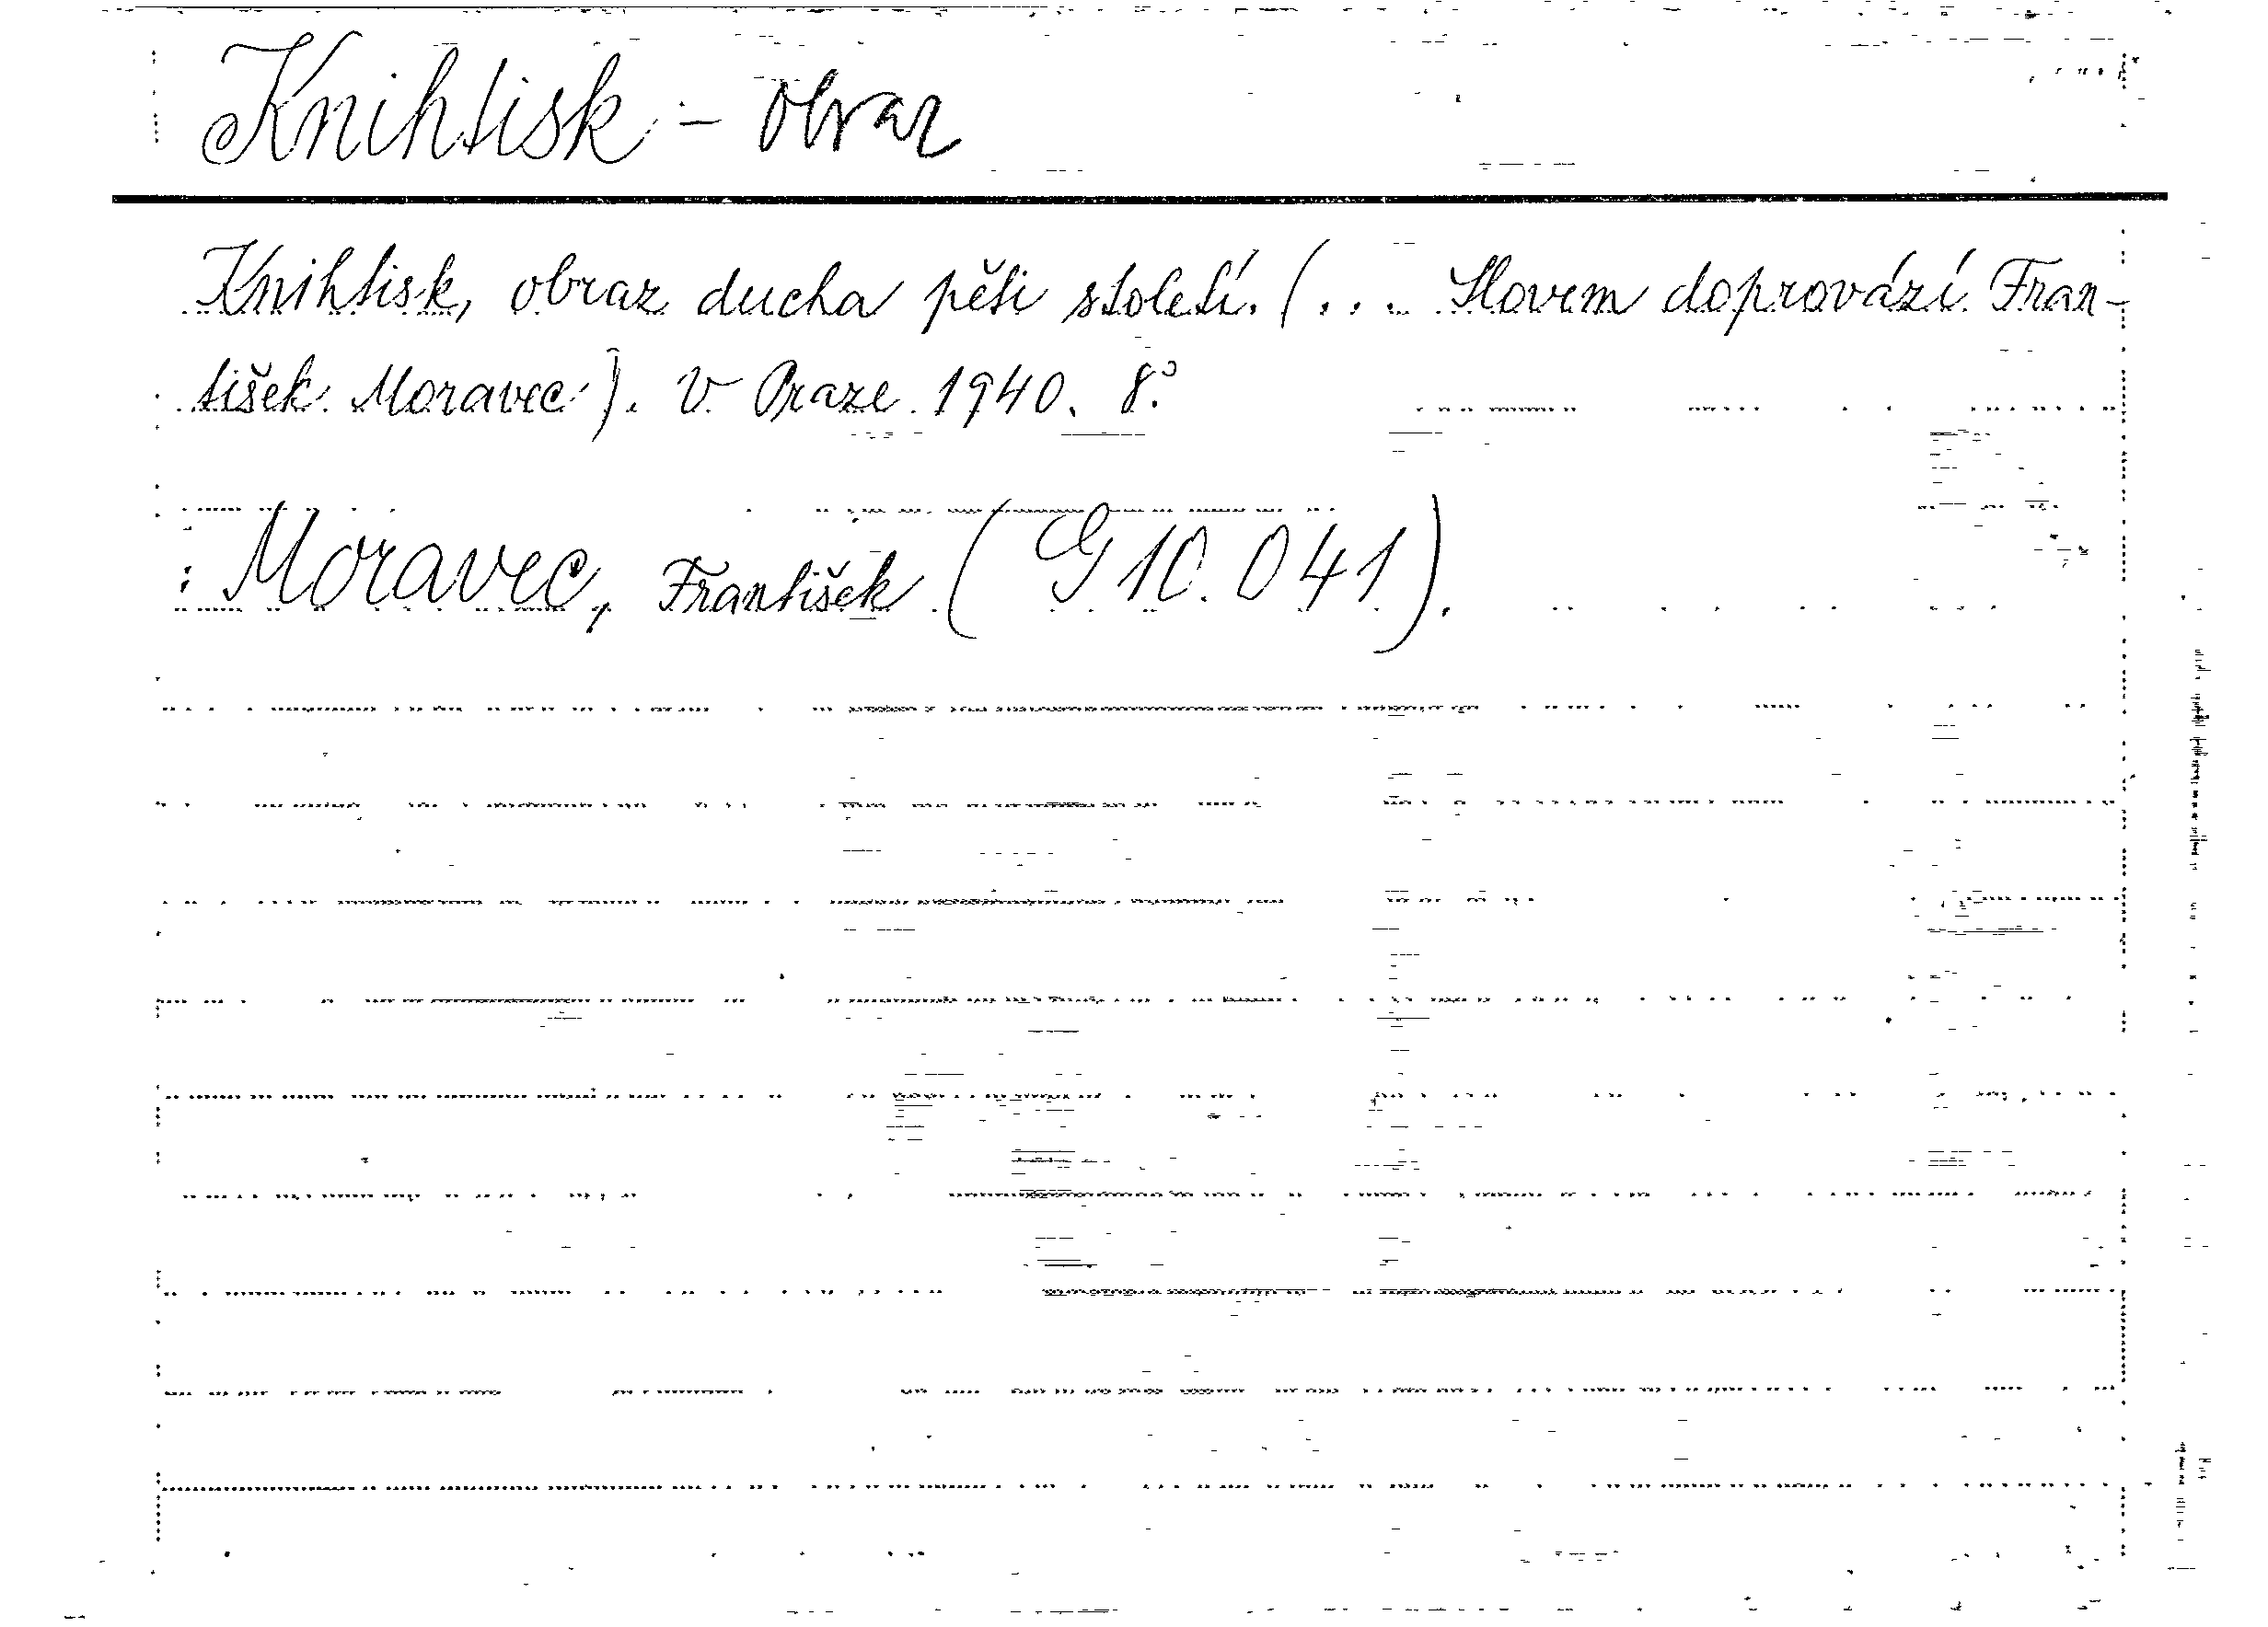 Knihtisk - obraz
Knihtisk, obraz ducha pěti století. (... Slovem doprovází Fran-
tišek Moravec). V Praze 1940. 8°.
Moravec, František (G 10.041).